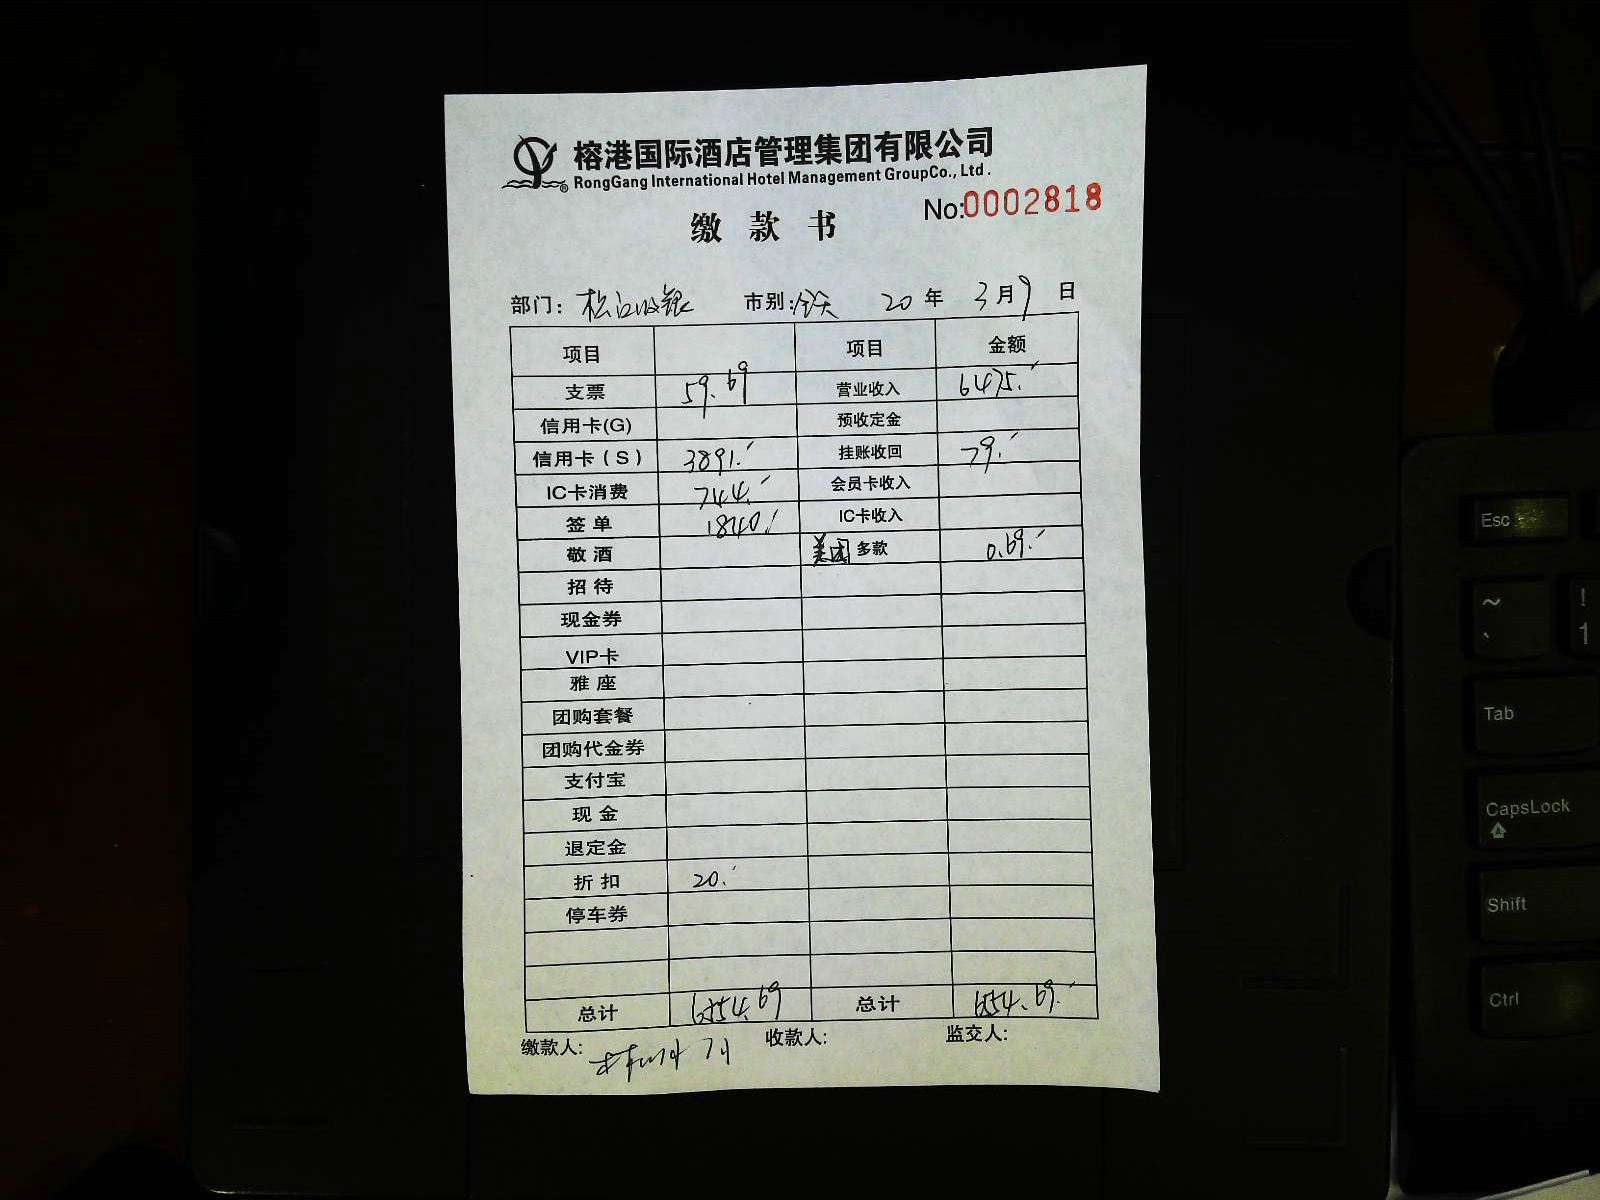 榕港国际酒店管理集团有限公司
RongGang International Hotel Management GroupCo., Ltd .
No:0002818
缴 款 书
部门: 松江收银 市别: 全天 20 年 3 月 9 日
项目 项目 金额
支票 59.69 营业收入 6475.-
信用卡(G) 预收定金
信用卡(S) 3891.- 挂账收回 79.-
IC卡消费 744.- 会员卡收入
签 单 1840.- IC卡收入
敬 酒 美团 多款 0.69.-
招 待
现金券
VIP卡
雅 座
团购套餐
团购代金券
支付宝
现 金
退定金
折 扣 20.-
停车券
总计 6554.69 总计 6554.69.-
缴款人: 收款人: 监交人:
Esc
~ !
` 1
Tab
CapsLock
Shift
Ctrl